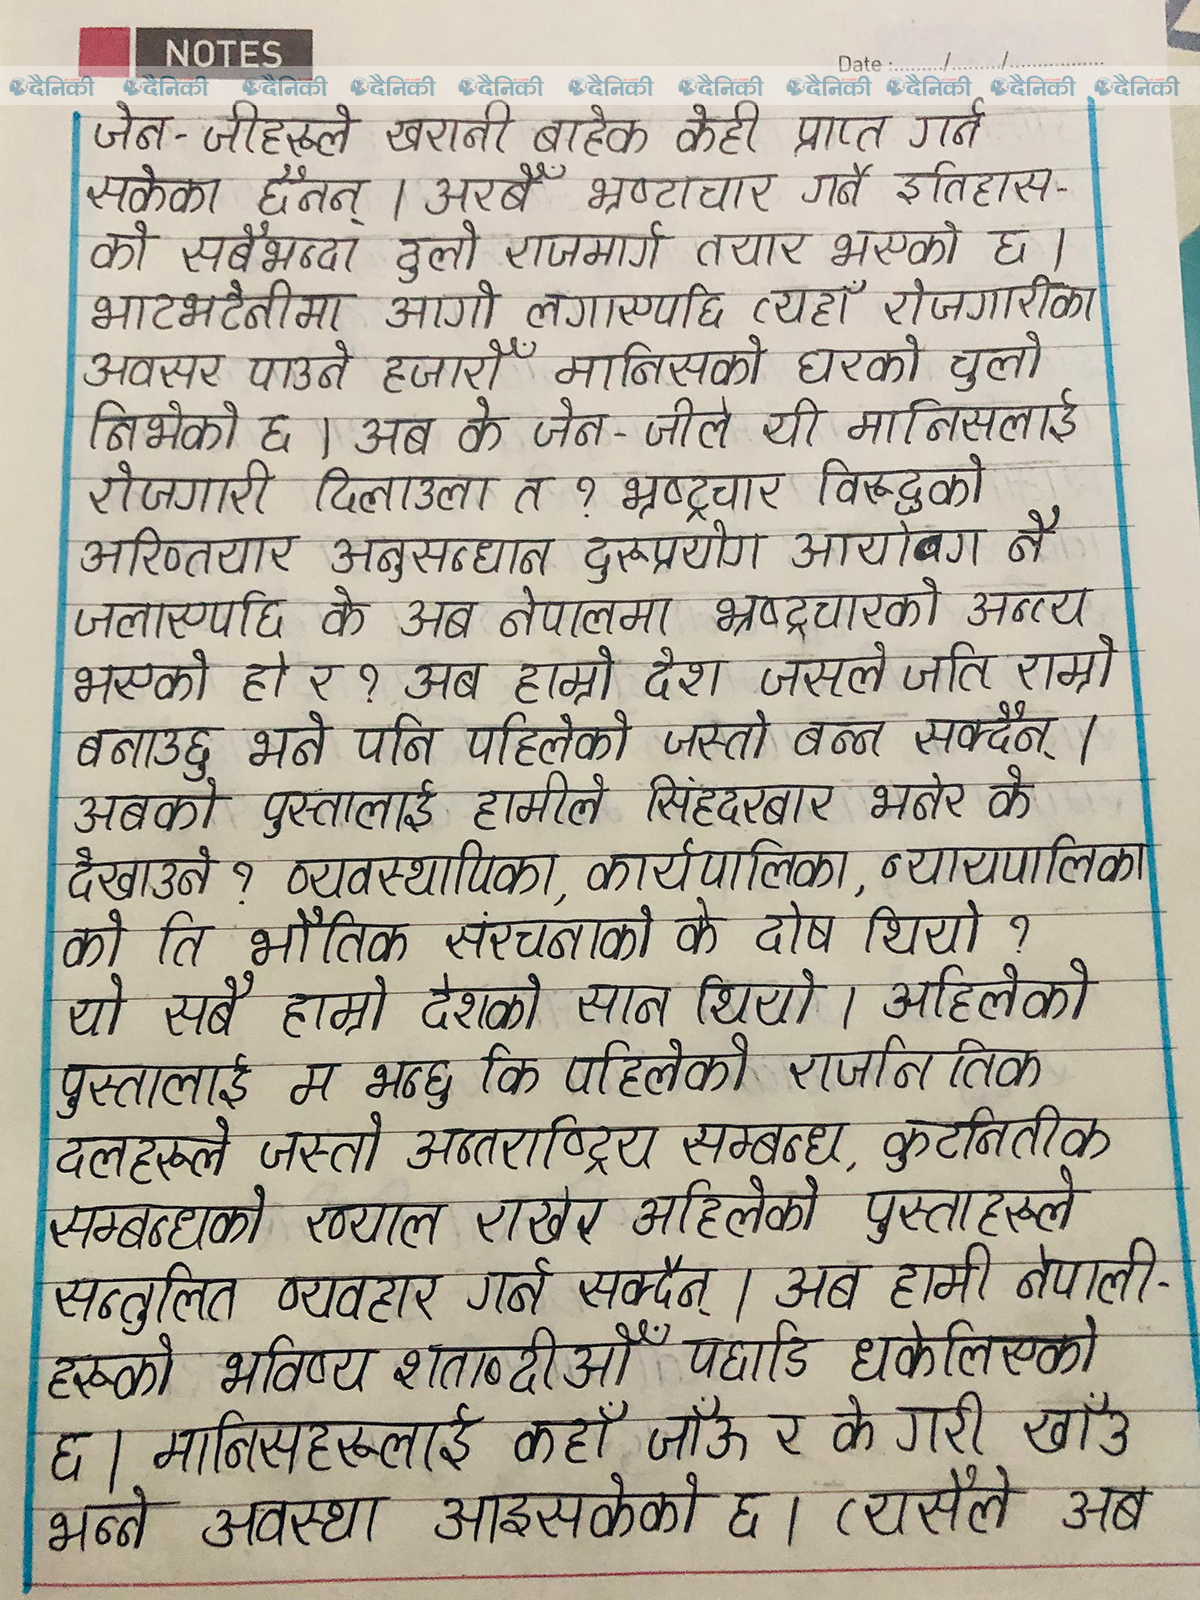 NOTES
Date :........./........./.................
दैनिकी दैनिकी दैनिकी दैनिकी दैनिकी दैनिकी दैनिकी दैनिकी दैनिकी दैनिकी
जेन-जीहरूले खरानी बाहेक केही प्राप्त गर्न
सकेका छैनन् । अरबौँ भ्रष्टाचार गर्ने इतिहास-
को सबैभन्दा ठुलो राजमार्ग तयार भएको छ ।
भाटभटेनीमा आगो लगाएपछि त्यहाँ रोजगारीका
अवसर पाउने हजारौँ मानिसको घरको चुलो
निभेको छ । अब के जेन-जीले यी मानिसलाई
रोजगारी दिलाउला त ? भ्रष्ट्रचार विरूद्धको
अख्तियार अनुसन्धान दुरूप्रयोग आयोग नै
जलाएपछि के अब नेपालमा भ्रष्ट्रचारको अन्त्य
भएको हो र ? अब हाम्रो देश जसले जति राम्रो
बनाउछु भने पनि पहिलेको जस्तो बन्न सक्दैन् ।
अबको पुस्तालाई हामीले सिंहदरबार भनेर के
देखाउने ? व्यवस्थापिका, कार्यपालिका, न्यायपालिका
को ति भौतिक संरचनाको के दोष थियो ?
यो सबै हाम्रो देशको सान थियो । अहिलेको
पुस्तालाई म भन्छु कि पहिलेको राजनितिक
दलहरूले जस्तो अन्तराष्ट्रिय सम्बन्ध, कुटनितीक
सम्बन्धको ख्याल राखेर अहिलेको पुस्ताहरूले
सन्तुलित व्यवहार गर्न सक्दैन् । अब हामी नेपाली-
हरूको भविष्य शताब्दीऔँ पछाडि धकेलिएको
छ । मानिसहरूलाई कहाँ जाँऊ र के गरी खाँउ
भन्ने अवस्था आइसकेको छ । त्यसैले अब